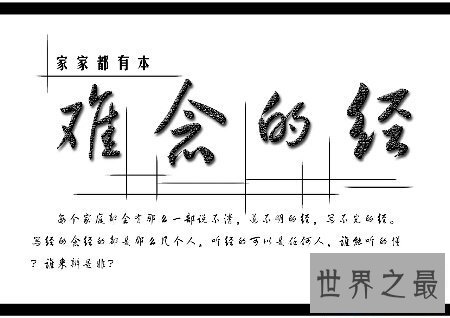 家家都有本
难念的经
每个家庭都会有那么一部说不清,道不明的经,写不完的经。
写经的念经的都是那么几个人,听经的可以是任何人,谁能听的懂
?谁来辩是非?
世界之最